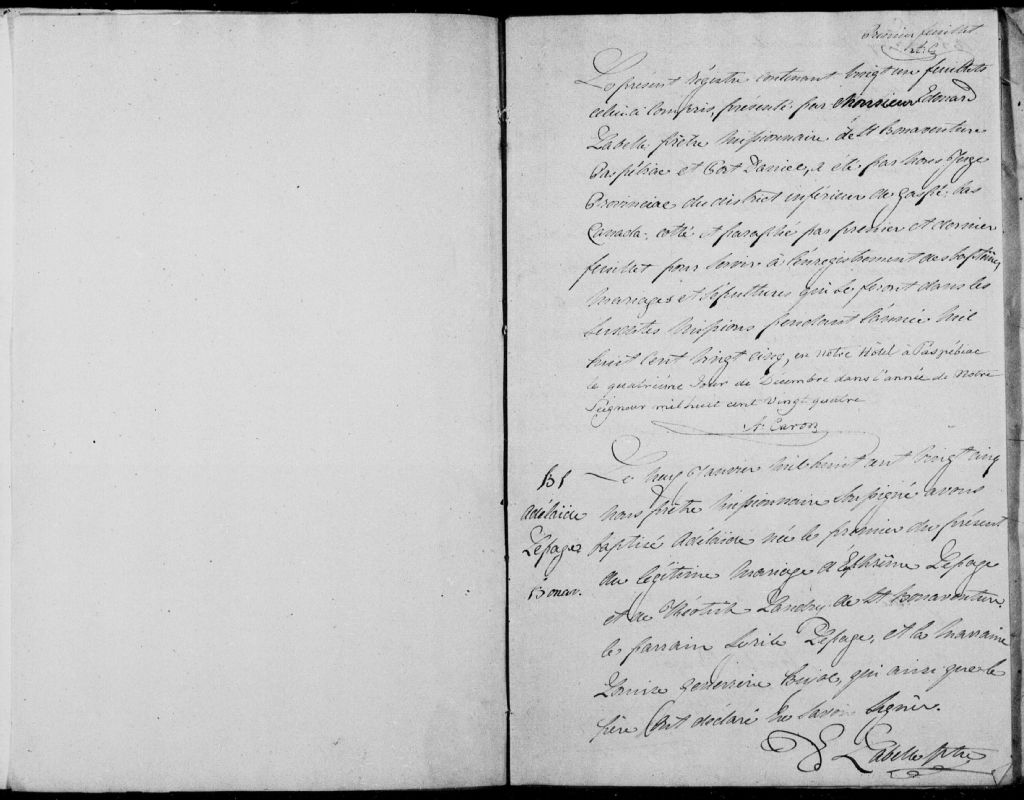 Premier feuillet
A. C.
Le présent Régistre contenant vingt un feuillets
celui ci compris, présenté par Monsieur Edouard
Labelle prêtre missionnaire de St Bonaventure
Paspébiac et Port Daniel, a été par nous Juge
Provincial du district inférieur de Gaspé, bas
Canada, cotté et paraphé par premier et dernier
feuillet pour servir à l'enregistrement des baptêmes
mariages et sépultures qui se feront dans les
susdites missions pendant l'année mil
huit cent vingt cinq, en notre Hôtel à Paspébiac
le quatrième Jour de Décembre dans l'année de Notre
Seigneur mil huit cent vingt quatre
A. Caron
B1
Adélaide
Lepage
Bonav.
Le Janvier mil huit cent vingt cinq
nous prêtre missionnaire soussigné avons
baptisé Adélaide née le premier du présent
du légitime mariage d'Ephrème Lepage
et de Landry de St Bonaventure.
le parrain Lepage, et la marraine
Louise qui ainsi que le
père ont déclaré ne savoir signer.
E Labelle Ptre